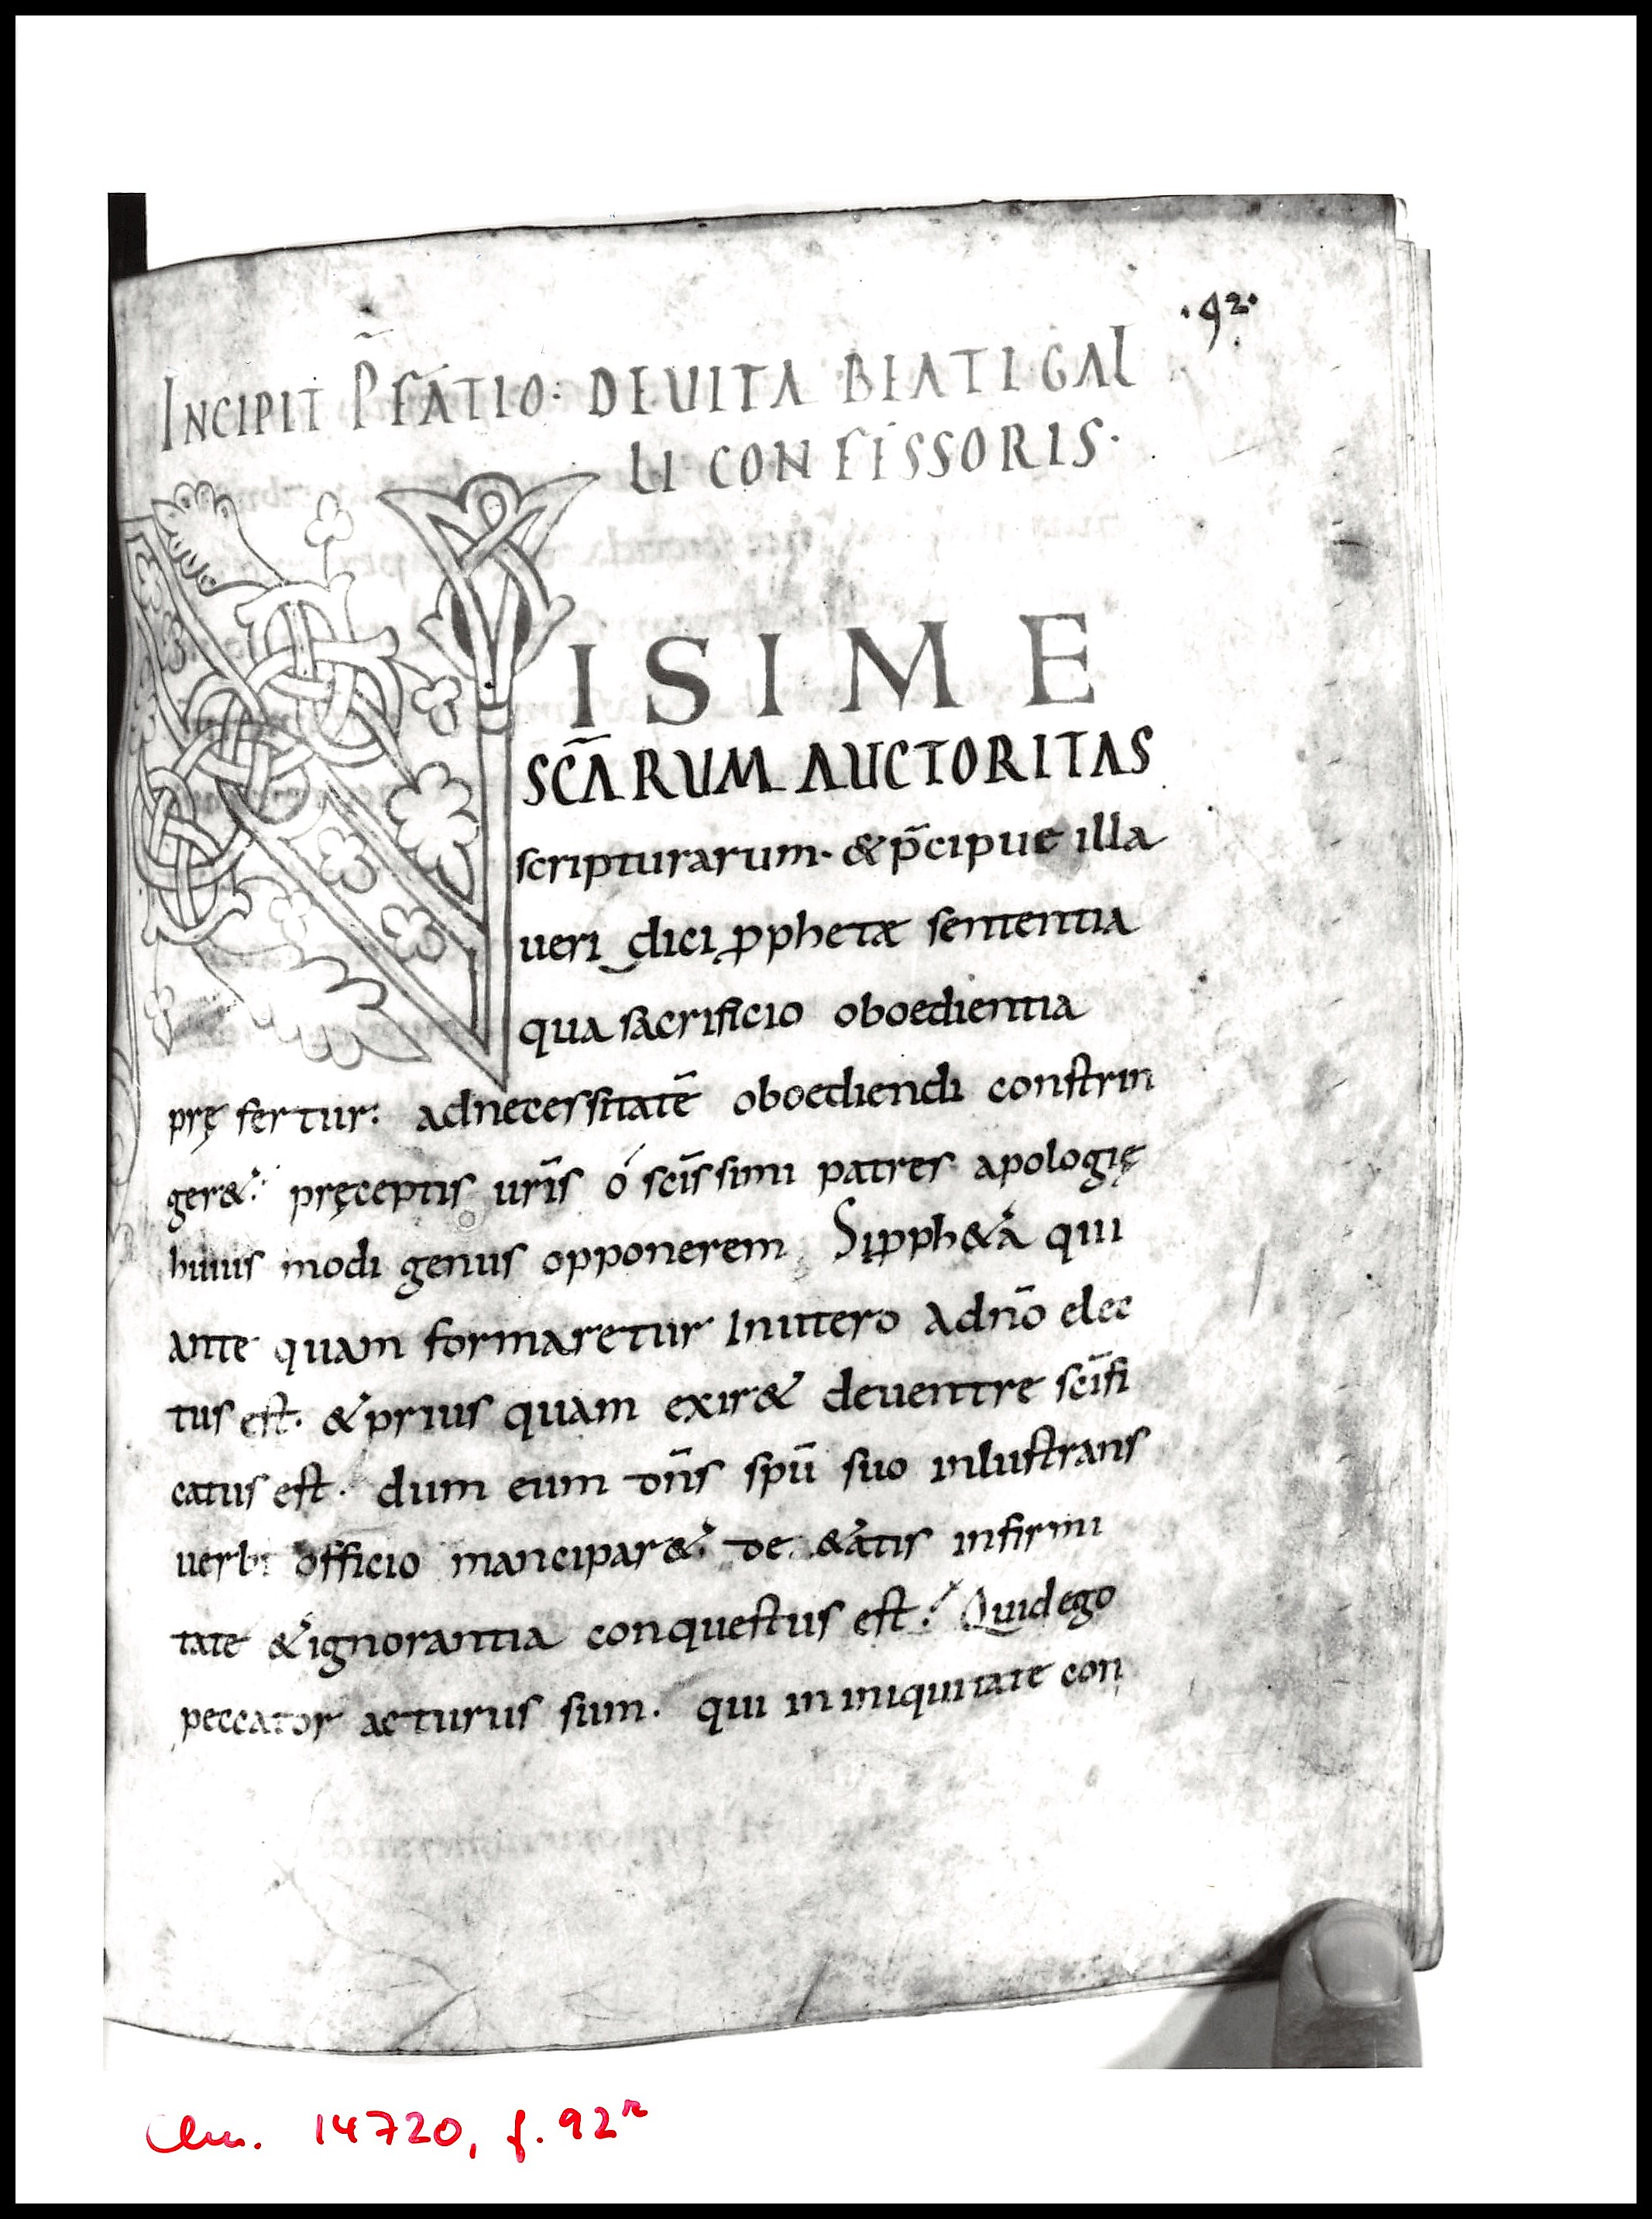 ·92·
INCIPIT P̃FATIO: DEUITA BEATI GAL
LI CONFESSORIS·
NISI ME
SC̃ARUM AUCTORITAS
scripturarum· & p̃cipue illa
ueri dici ꝓphetæ sententia
qua sacrificio oboedientia
prę fertur: adnecessitatē oboediendi constrin
ger&: pręceptis ur̄is ó sc̄issimi patres apologię
huius modi genus opponerem, Siꝓph&a qui
ante quam formaretur Inutero adn̄o elec
tus est· & prius quam exir& deuentre sc̄ifi
catus est· dum eum dn̄s spū suo inlustrans
uerbi officio mancipar&: de &atis infirmi
tate & ignorantia conquestus est: Quid ego
peccator acturus sum· qui in iniquitate con
Clm. 14720, f. 92r